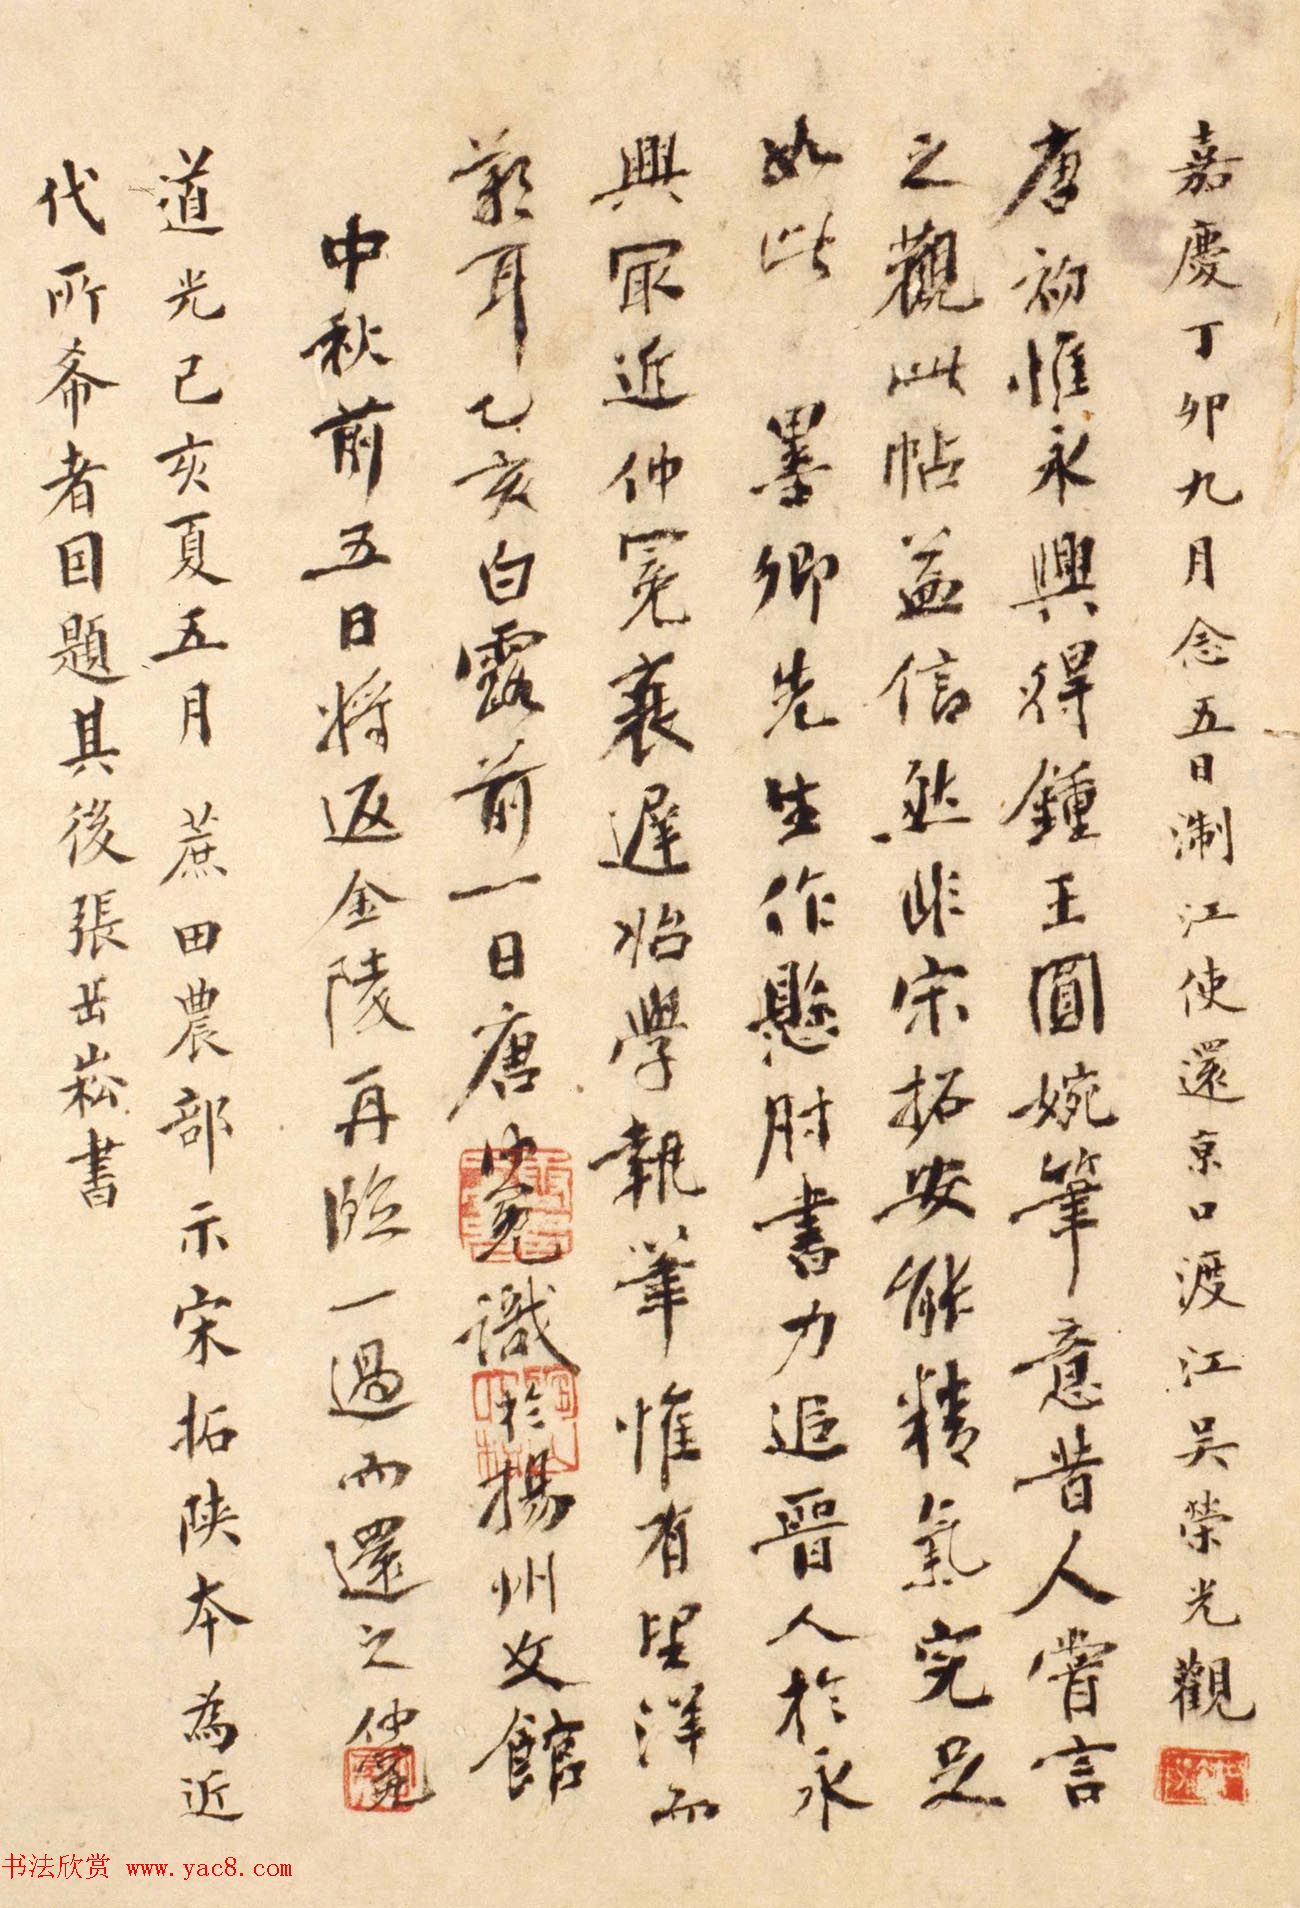 嘉慶丁卯九月念五日淛江使還京口渡江吳榮光觀
唐初惟永興得鍾王圓婉筆意昔人嘗言
之觀此帖益信然非宋拓安能精氣完足
如此　墨卿先生作懸肘書力追晉人於永
興冣近仲冕衰遲始學執筆惟有望洋而
歎耳乙亥白露前一日唐仲冕識於揚州文館
中秋前五日將返金陵再臨一過而還之仲冕
道光己亥夏五月　蔗田農部示宋拓陝本為近
代所希者因題其後張岳崧書
书法欣赏 www.yac8.com